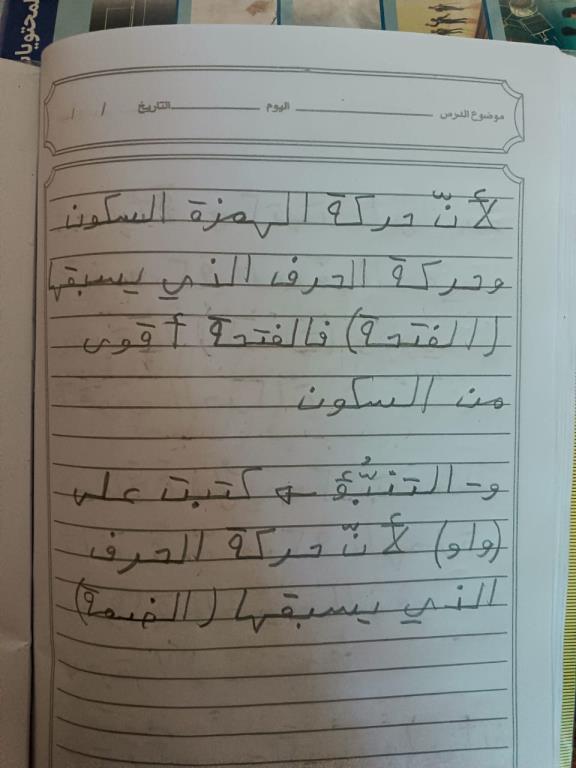 المحتويات
موضوع الدرس اليوم التاريخ / /
لأنّ حركة الهمزة السكون
وحركة الحرف الذي يسبقها
(الفتحة) فالفتحة أقوى
من السكون
و- التنبُّؤ ← كتبت على
(واو) لأنّ حركة الحرف
الذي يسبقها (الضمة)